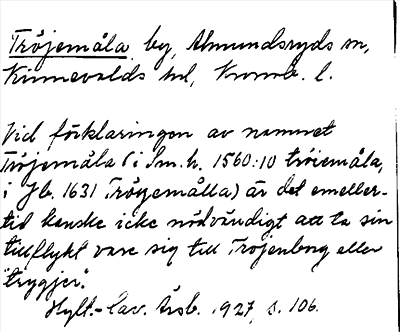 Tröjemåla by, Almundsryds sn,
Kinnevalds hd, Kronob. l.
Vid förklaringen av namnet
Tröjemåla (i Sm.h. 1560:10 tröiemåla,
i Jb. 1631 Tröyemålla) är det emeller-
tid kanske icke nödvändigt att ta sin
tillflykt vare sig till Tröjenborg eller
"tryggjer".
Hylt.-Cav. Årsb. 1927, s. 106.